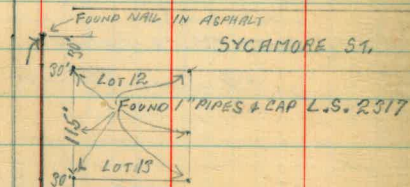 FOUND NAIL IN ASPHALT
30'
SYCAMORE ST.
30'
LOT 12
FOUND 1" PIPES & CAP L.S. 2317
115'
LOT 13
30'